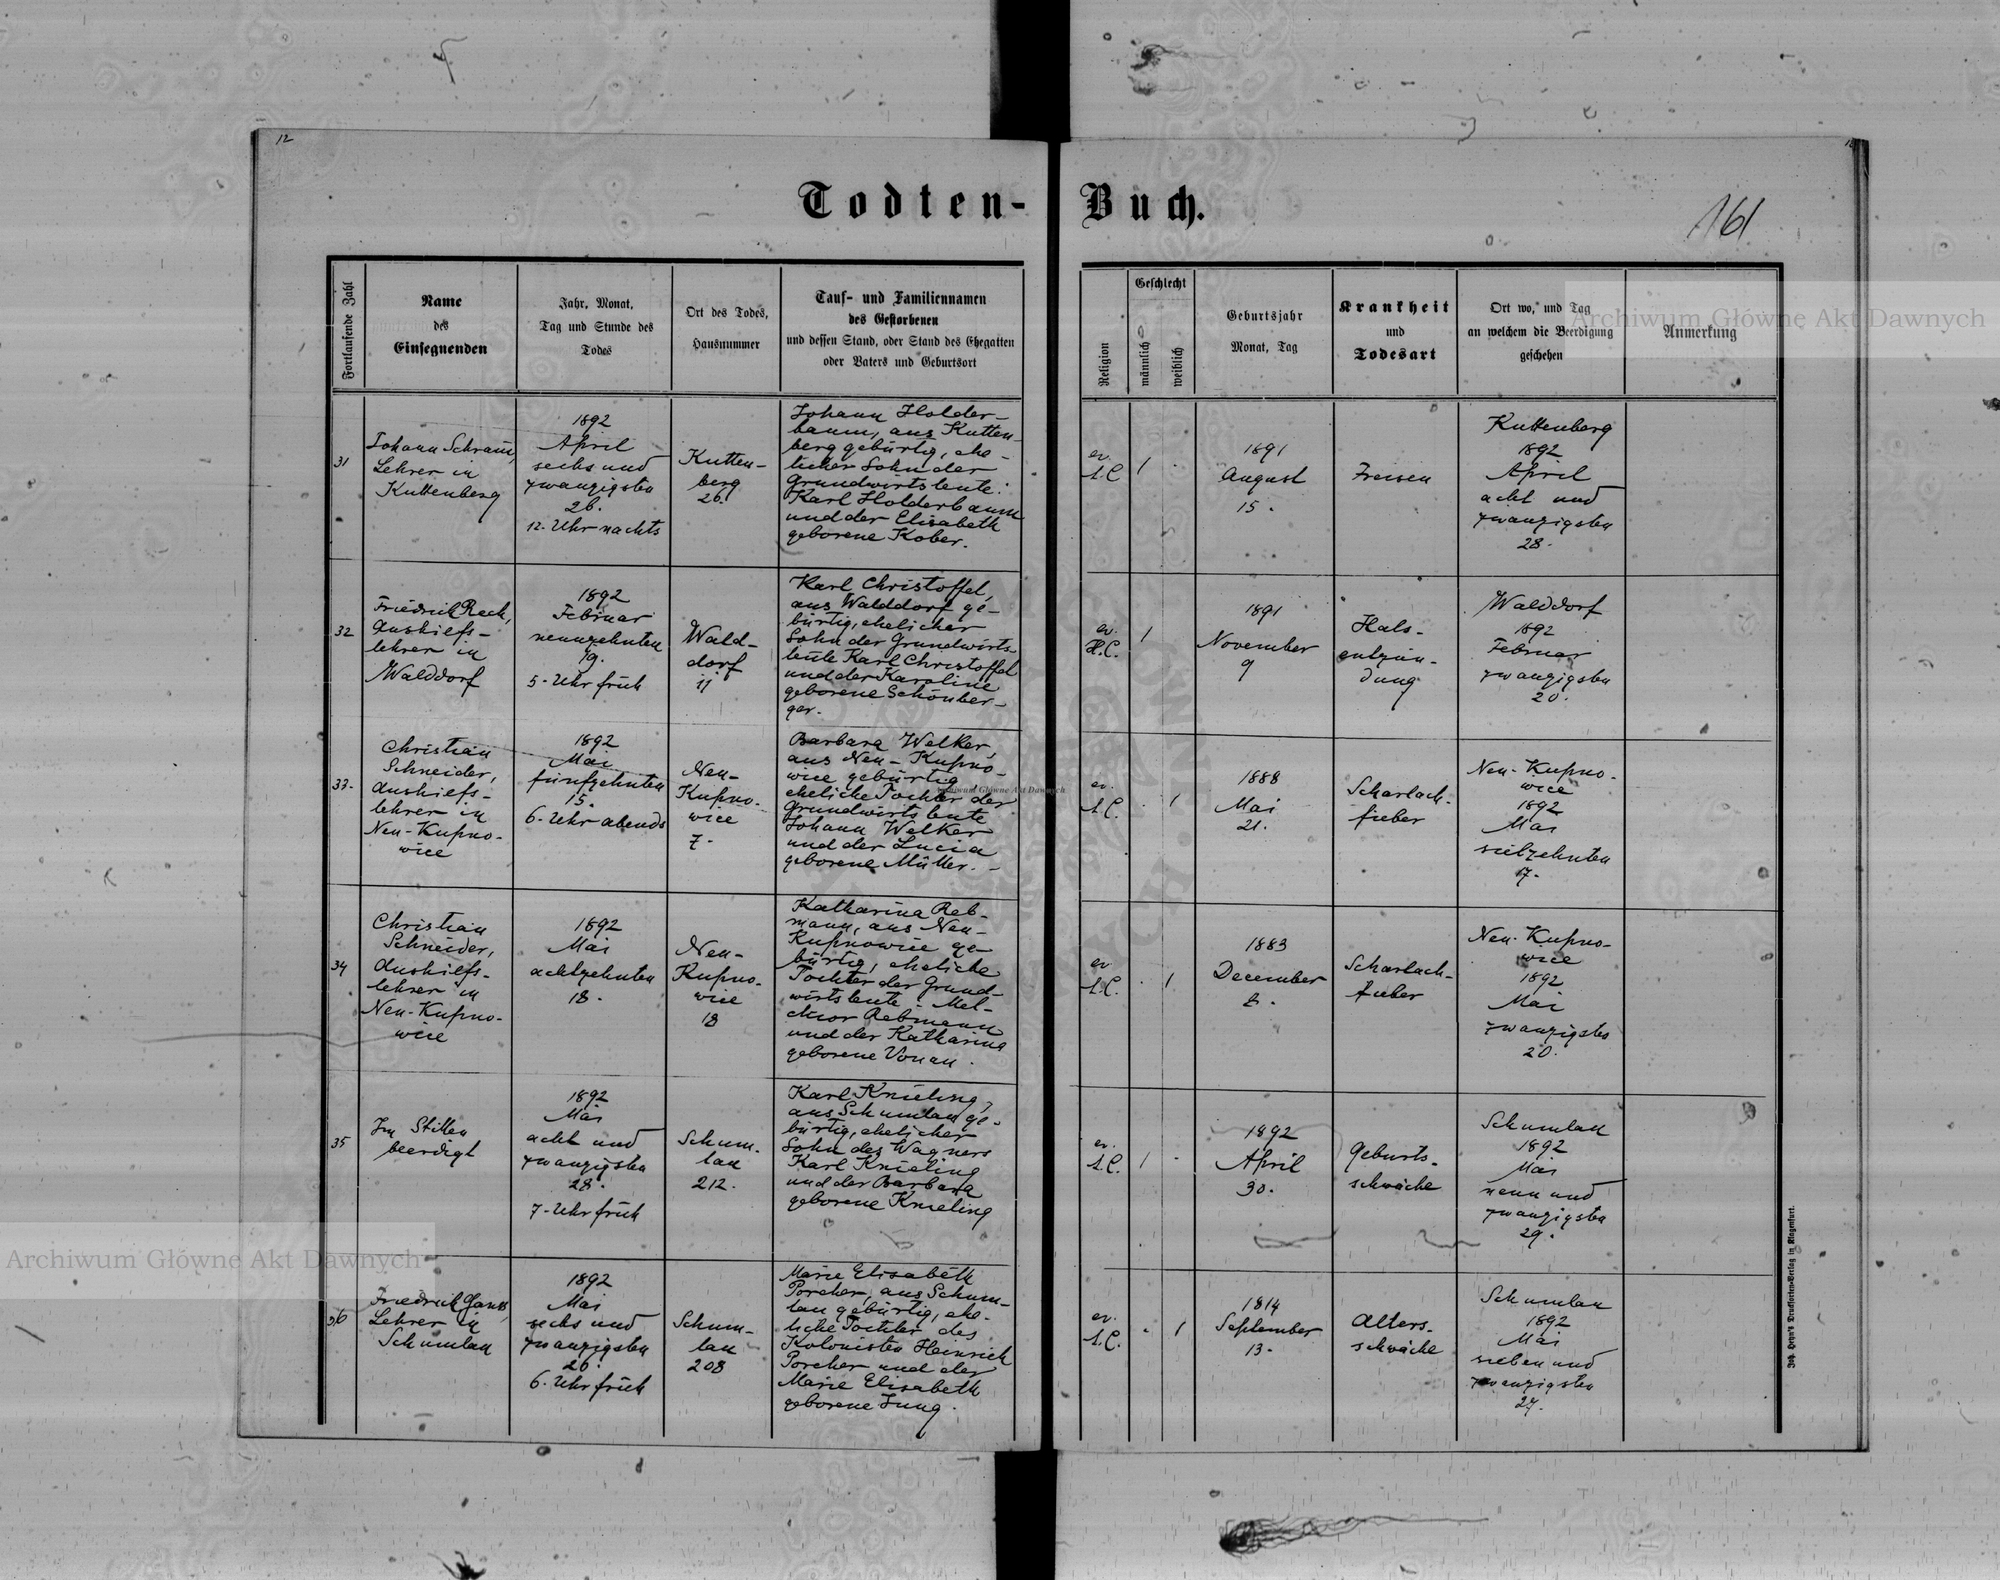 12
Todten-Buch.
161
Fortlaufende Zahl
Name
des
Einsegnenden
Jahr, Monat,
Tag und Stunde des
Todes
Ort des Todes,
Hausnummer
Tauf- und Familiennamen
des Gestorbenen
und dessen Stand, oder Stand des Ehegatten
oder Vaters und Geburtsort
Religion
Geschlecht
männlich
weiblich
Geburtsjahr
Monat, Tag
Krankheit
und
Todesart
Ort wo, und Tag
an welchem die Beerdigung
geschehen
Anmerkung
31
Johann Schram,
Lehrer in
Kuttenberg
1892
April
sechs und
zwanzigsten
26.
12. Uhr nachts
Kutten-
berg
26.
Johann Holder-
baum, aus Kutten-
berg gebürtig, ehe-
licher Sohn der
Grundwirtsleute:
Karl Holderbaum
und der Elisabeth
geborene Kober.
ev.
A.C
1
1891
August
15.
Freisen
Kuttenberg
1892
April
acht und
zwanzigsten
28.
32
Friedrich Rech,
Aushilfs-
lehrer in
Walddorf
1892
Februar
neunzehnten
19.
5. Uhr früh
Wald-
dorf
11
Karl Christoffel,
aus Walddorf ge-
bürtig, ehelicher
Sohn der Grundwirts-
leute Karl Christoffel
und der Karoline
geborene Schönber-
ger.
ev.
H.C.
1
1891
November
9
Hals-
entzün-
dung
Walddorf
1892
Februar
zwanzigsten
20.
33.
Christian
Schneider,
Aushilfs-
lehrer in
Neu-Kupno-
wice
1892
Mai
fünfzehnten
15.
6. Uhr abends
Neu-
Kupno-
wice
7.
Barbara Welker,
aus Neu-Kupno-
wice gebürtig
eheliche Tochter der
Grundwirtsleute
Johann Welker
und der Lucia
geborene Müller. -
ev.
A.C.
1
1888
Mai
21.
Scharlach-
fieber
Neu-Kupno-
wice
1892
Mai
siebzehnten
17.
34
Christian
Schneider,
Aushilfs-
lehrer in
Neu-Kupno-
wice
1892
Mai
achtzehnten
18.
Neu-
Kupno-
wice
18
Katharina Reb-
mann, aus Neu-
Kupnowice ge-
bürtig, eheliche
Tochter der Grund-
wirtsleute: Mel-
chior Rebmann
und der Katharina
geborene Vonau.
ev.
A.C.
1
1883
December
8.
Scharlach-
fieber
Neu-Kupno-
wice
1892
Mai
zwanzigsten
20.
35
Im Stillen
beerdigt
1892
Mai
acht und
zwanzigsten
28.
7. Uhr früh
Schum-
lau
212.
Karl Knieling,
aus Schumlau ge-
bürtig, ehelicher
Sohn des Wagners
Karl Knieling
und der Barbara
geborene Knieling
ev.
A.C.
1
1892
April
30.
Geburts-
schwäche
Schumlau
1892
Mai
neun und
zwanzigsten
29.
36
Friedrich Ganss,
Lehrer in
Schumlau
1892
Mai
sechs und
zwanzigsten
26.
6. Uhr früh
Schum-
lau
208
Marie Elisabeth
Porcher, aus Schum-
lau gebürtig, ehe-
liche Tochter des
Kolonisten Heinrich
Porcher und der
Marie Elisabeth
geborene Jung.
ev.
A.C.
1
1814
September
13.
Alters-
schwäche
Schumlau
1892
Mai
sieben und
zwanzigsten
27.
Joh. Heyn's Drucksorten-Verlag in Klagenfurt.
Archiwum Główne Akt Dawnych
Archiwum Główne Akt Dawnych
Archiwum Główne Akt Dawnych